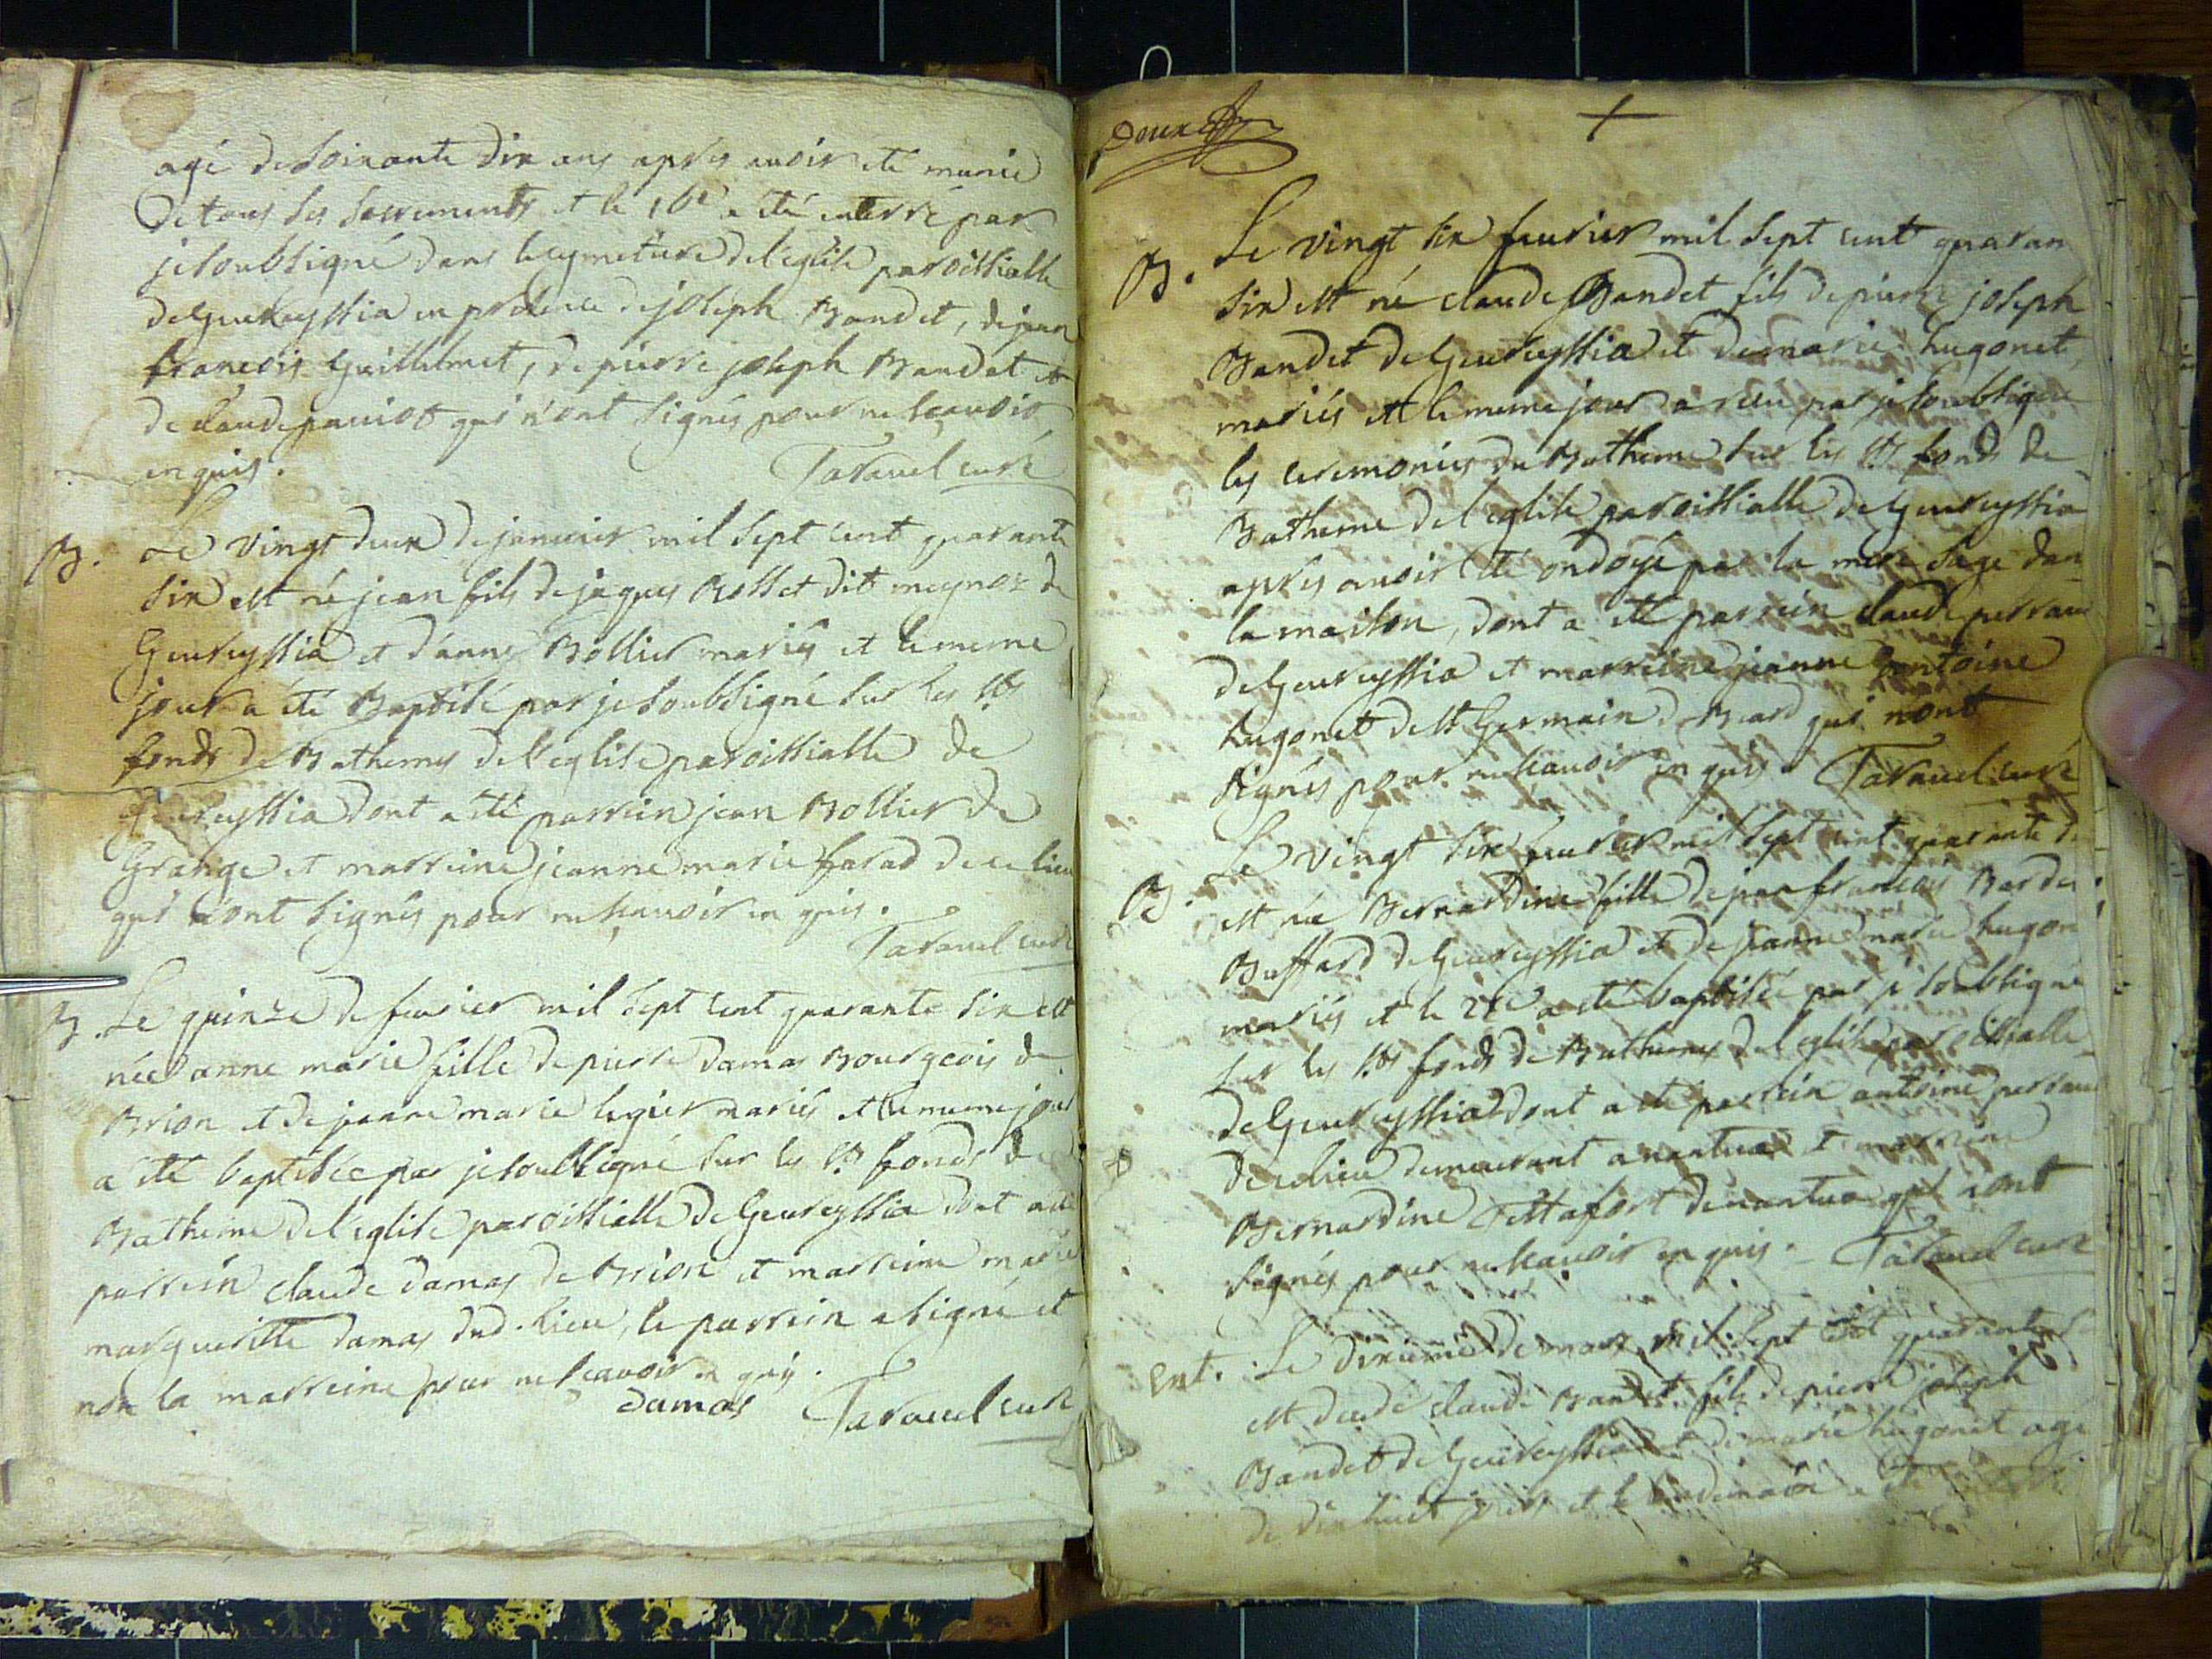 agé de Soixante dix ans apres auoir eté munie
de tous les Sacrements et le 16e a été enterré par
je Soubsigné dans le cymetiere de l'eglise paroissialle
de Geureyssia en presence de joseph Bandet, de jean
francois Guillelmet, de pierre joseph Bandet et
de claude qui n'ont Signés pour ne Scauoir
en quis.
Tarauel curé
B. Le vingt deux de januier mil Sept cent quarante
Six est né jean fils de jaques Rosset dit meynoz de
Geureyssia et d'anne Bollier mariés et le meme
jour a été Baptisé par je Soubsigné Sur les sts
fonds de Bathemes de l'eglise paroissialle de
Geureyssia dont a été parrein jean Bollier de
Grange et marreine jeanne marie farad de ce lieu
qui n'ont Signés pour ne Scauoir en quis.
Tarauel curé
B. Le quinze de feurier mil Sept cent quarante Six est
née anne marie fille de pierre Damas Bourgeois de
Brion et de jeanne marie legier mariés et le meme jour
a été baptisée par je Soubsigné Sur les sts fonds de
Batheme de l'eglise paroissialle de Geureyssia dont a été
parrein claude Damas de Brion et marreine marie
margueritte Damas dud. lieu, le parrein a Signé et
non la marreine pour ne Scauoir en quis.
Damas Tarauel curé
Doux
B. Le vingt Six feurier mil Sept cent quaran
Six est né claude Bandet fils de pierre joseph
Bandet de Geureyssia et de marie hugonet,
mariés et le meme jour a receu par je Soubsigné
les ceremonies du Batheme Sur les sts fonds de
Batheme de l'eglise paroissialle de Geureyssia
apres auoir été ondoyé par la mere Sage dan
la maison, dont a été parrein claude perrau
de Geureyssia et marreine jeanne antoine
hugonet de st Germain de Beard qui n'ont
Signés pour ne Scauoir en quis. Tarauel curé
B. Le vingt Six feurier mil Sept cent quarante S
est née Bernardine fille de jean francois Bardes
Buffard de Geureyssia et de jeanne marie hugon
mariés et le 28e a été baptisée par je Soubsigné
Sur les sts fonds de Bathemes de l'eglise paroissialle
de Geureyssia dont a été parrein antoine perrau
de ce lieu demeurant a nantua et marreine
Bernardine Testafort de nantua qui n'ont
Signés pour ne Scauoir en quis. Tarauel curé
Ent. Le dixieme de mars mil Sept cent quarante
est decedé claude Bandet fils de pierre joseph
Bandet de Geureyssia et de marie hugonet agé
de dix huit jours et le lendemain a été enterré